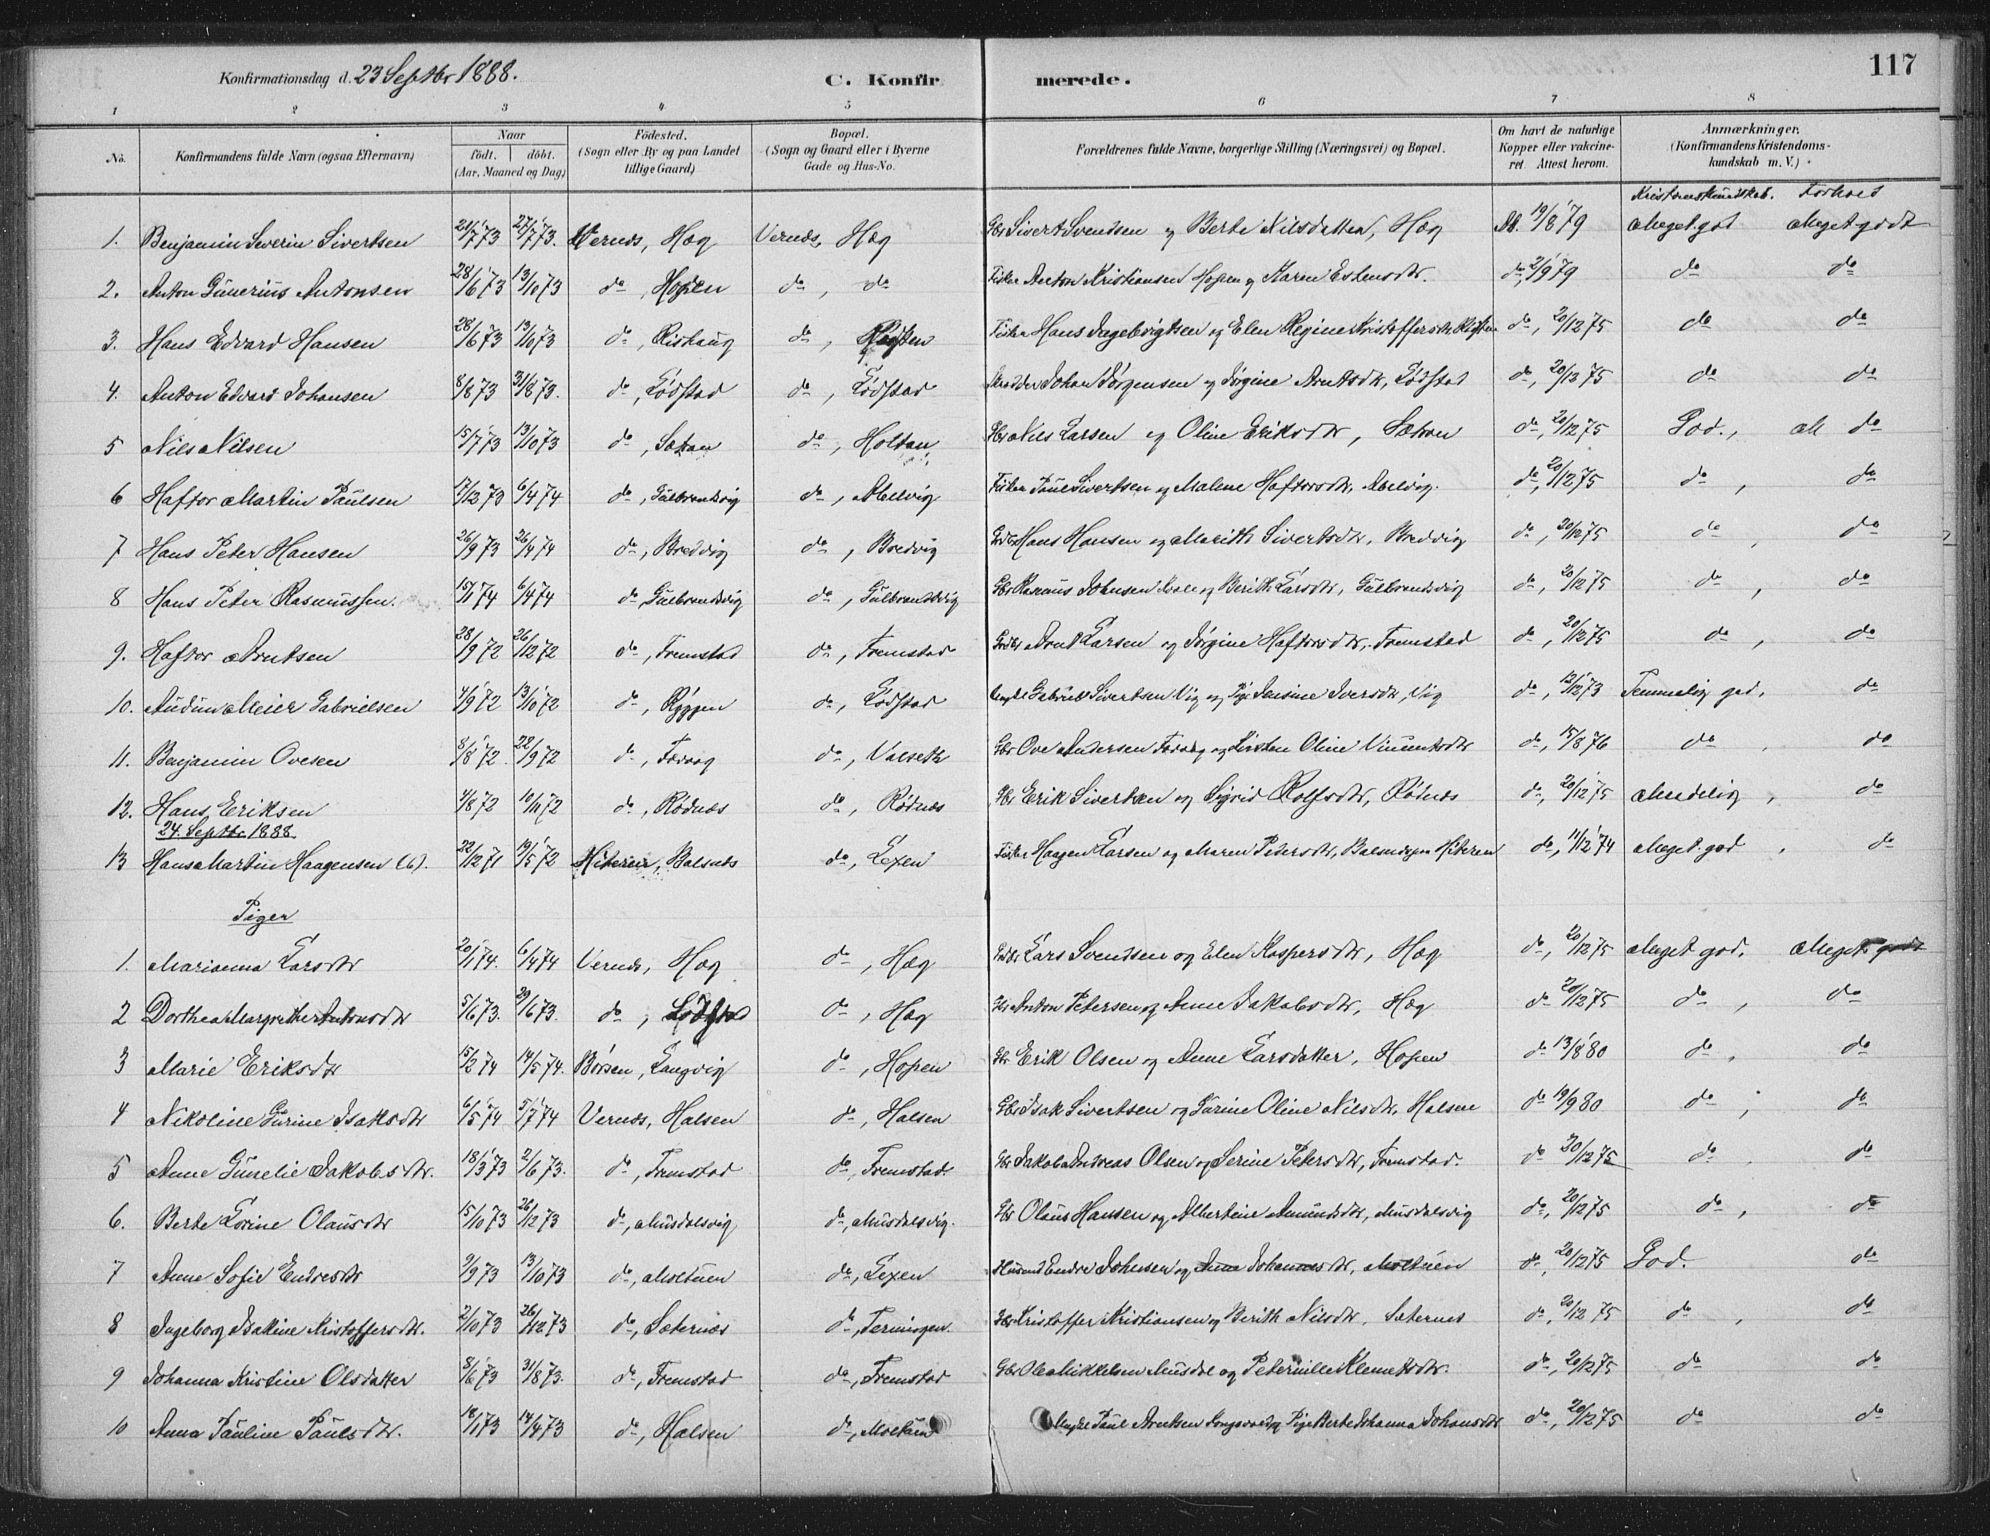 Konfirmationsdag d. 23 Septbr 1888. C. Konfirmerede. 117
1 2 3 4 5 6 7 8
No. Konfirmandens fulde Navn (ogsaa Efternavn) Naar födt. döbt. (Aar, Maaned og Dag) Födested. (Sogn eller By og paa Landet tillige Gaard) Bopæl. (Sogn og Gaard eller i Byerne Gade og Hus-No. Forældrenes fulde Navne, borgerlige Stilling (Næringsvei) og Bopæl. Om havt de naturlige Kopper eller vakcineret Attest herom. Anmærkninger. (Konfirmandens Kristendomskundskab m. V.)
Kristendomskundskab. Forhold
1. Benjamin Severin Sivertsen 21/7 73 27/7 73. Vernæs, Hæg Vernæs, Hæg Gbr Sivert Svendsen og Berte Nilsdatter, Hæg 19/8 79 Meget god Meget godt
2. Anton Gunerius Antonsen 28/6 73 13/10 73 do, Hopen do, do Fisker Anton Kristiansen Hopen og Karen Estensdtr. do, 2/9 79 do do
3. Hans Edvard Hansen 28/6 73 13/10 73 do, Rishaug do, Fisker Hans Ingebrigtsen og Elen Regine Kristoffersdtr do, 20/12 75 do do
4. Anton Edvard Johansen 8/8 73 31/8 73. do, Lödstad do, Lödstad Skrædder Johan Jörgensen og Jörgine Arntsdtr, Lödstad do, 20/12 75 do do
5 Nils Nilsen 15/7 73 13/10 73 do, Sætran do, Holtan Gbr Nils Larsen og Oline Eriksdtr, Sætran do, 20/12 75 God., M do
6 Haftor Martin Paulsen 17/12 73 6/4 74 do, Gulbrandsvig do, Abelvig Fisker Paul Sivertsen og Malene Haftorsdtr, Abelvig. do, 20/12 75 do, do
7 Hans Peter Hansen 26/9 73 26/4 74 do, Bredvig do, Bredvig Gbr Hans Hansen og Marith Sivertsdtr, Bredvig do, 20/12 75 do, do
8 Hans Peter Rasmussen. 15/1 74 6/4 74 do, Gulbrandsvig do, Gulbrandsvig Gbr Rasmus Johnsen og Berith Larsdtr, Gulbrandsvig do, 20/12 75 do, do
9. Haftor Arntsen 28/9 72 26/12 72 do, Fremstad do, Fremstad Gbr Arnt Larsen og Jörgine Haftorsdtr, Fremstad do, 20/12 75 do, do
10. Audun Meier Gabrielsen 7/9 72 13/10 72 do, Ryggen do, Lödstad Ungkl Gabriel Sivertsen Vig og Pige Jensine Iversdtr, Vig do, 12/12 73 Temmelig god, do
11. Benjamin Ovesen 8/8 72 22/9 72 do, Foraag do, Valseth Gbr Ove Andersen Foraag og Kirsten Oline Vinumsdtr do, 15/8 76 do, do
12. Hans Eriksen 4/8 72 10/11 72 do, Rödnæs do, Rödnæs Gbr Erik Sivertsen og Sigrid Rolfsdtr, Rödnæs do, 20/12 75 Maadelig, do
24. Septbr. 1888.
13 Hans Martin Haagensen (b). 22/12 71 19/5 72 Hiteren, Balsnæs do, Lexen Fisker Haagen Larsen og Maren Petersdtr, Hiteren do, 11/12 74 Meget god, do
Piger
1. Marianna Larsdtr 20/1 74. 6/4 74 Vernæs, Hæg do, Hæg Gbr Lars Svendsen og Elen Kaspersdtr, Hæg do, 20/12 75 Meget god. Meget godt
2 Dorthea Margrethe Antonsdtr 5/6 73. 29/6 73. do, Lödstad do, Hæg Gbr Anton Petersen og Anne Jakobsdtr, Hæg do 20/12 75 do, do
3 Marie Eriksdtr 15/2 74 14/5 74. Börsen, Langvig do, Hopen Gbr Erik Olsen og Anne Larsdatter, Hopen do 13/8 80 do, do
4 Nikoline Gurine Isaksdtr 6/5 74 5/7 74 Vernæs, Halsen do, Halsen Gbr Isak Sivertsen og Gurine Oline Nilsdtr, Halsen do 19/9 80 do, do
5 Anne Gunelie Jakobsdtr. 18/3 73 2/6 73. do, Fremstad do, Fremstad. Gbr Jakob Andreas Olsen og Serine Petersdtr, Fremstad. do 20/12 75 do, do
6. Berte Lorine Olausdtr 15/10 73 26/12 73 do, Musdalsvig do, Musdalsvig. Gbr Olaus Hansen og Albertine Amundsdtr, Musdalsvig do, 20/12 75 do, do
7 Anne Sofie Endresdtr 9/9 73 13/10 73 do, Moltuen do, Lexen Husmd Endre Johnsen og Anne Johannesdtr, Moltuen do, 20/12 75 God. do
8 Ingeborg Isakine Kristoffersdtr. 2/10 73 26/12 73 do, Sæternæs do, Terningen. Gbr Kristoffer Kristiansen og Berith Nilsdtr, Sæternes do, 20/12 75 do, do
9 Johanna Kristine Olsdatter 8/6 73 31/8 73. do, Fremstad do, Fremstad Gbr Ole Mikkelsen Musdal og Peternille Klemetsdtr. do, 20/12 75 do do
10 Anna Pauline Paulsdtr. 18/1 73 14/4 73 do, Halsen do, Moltuen Ungkl Paul Arntsen og Pige Berte Johanna Johansdtr do, 20/12 75 do do